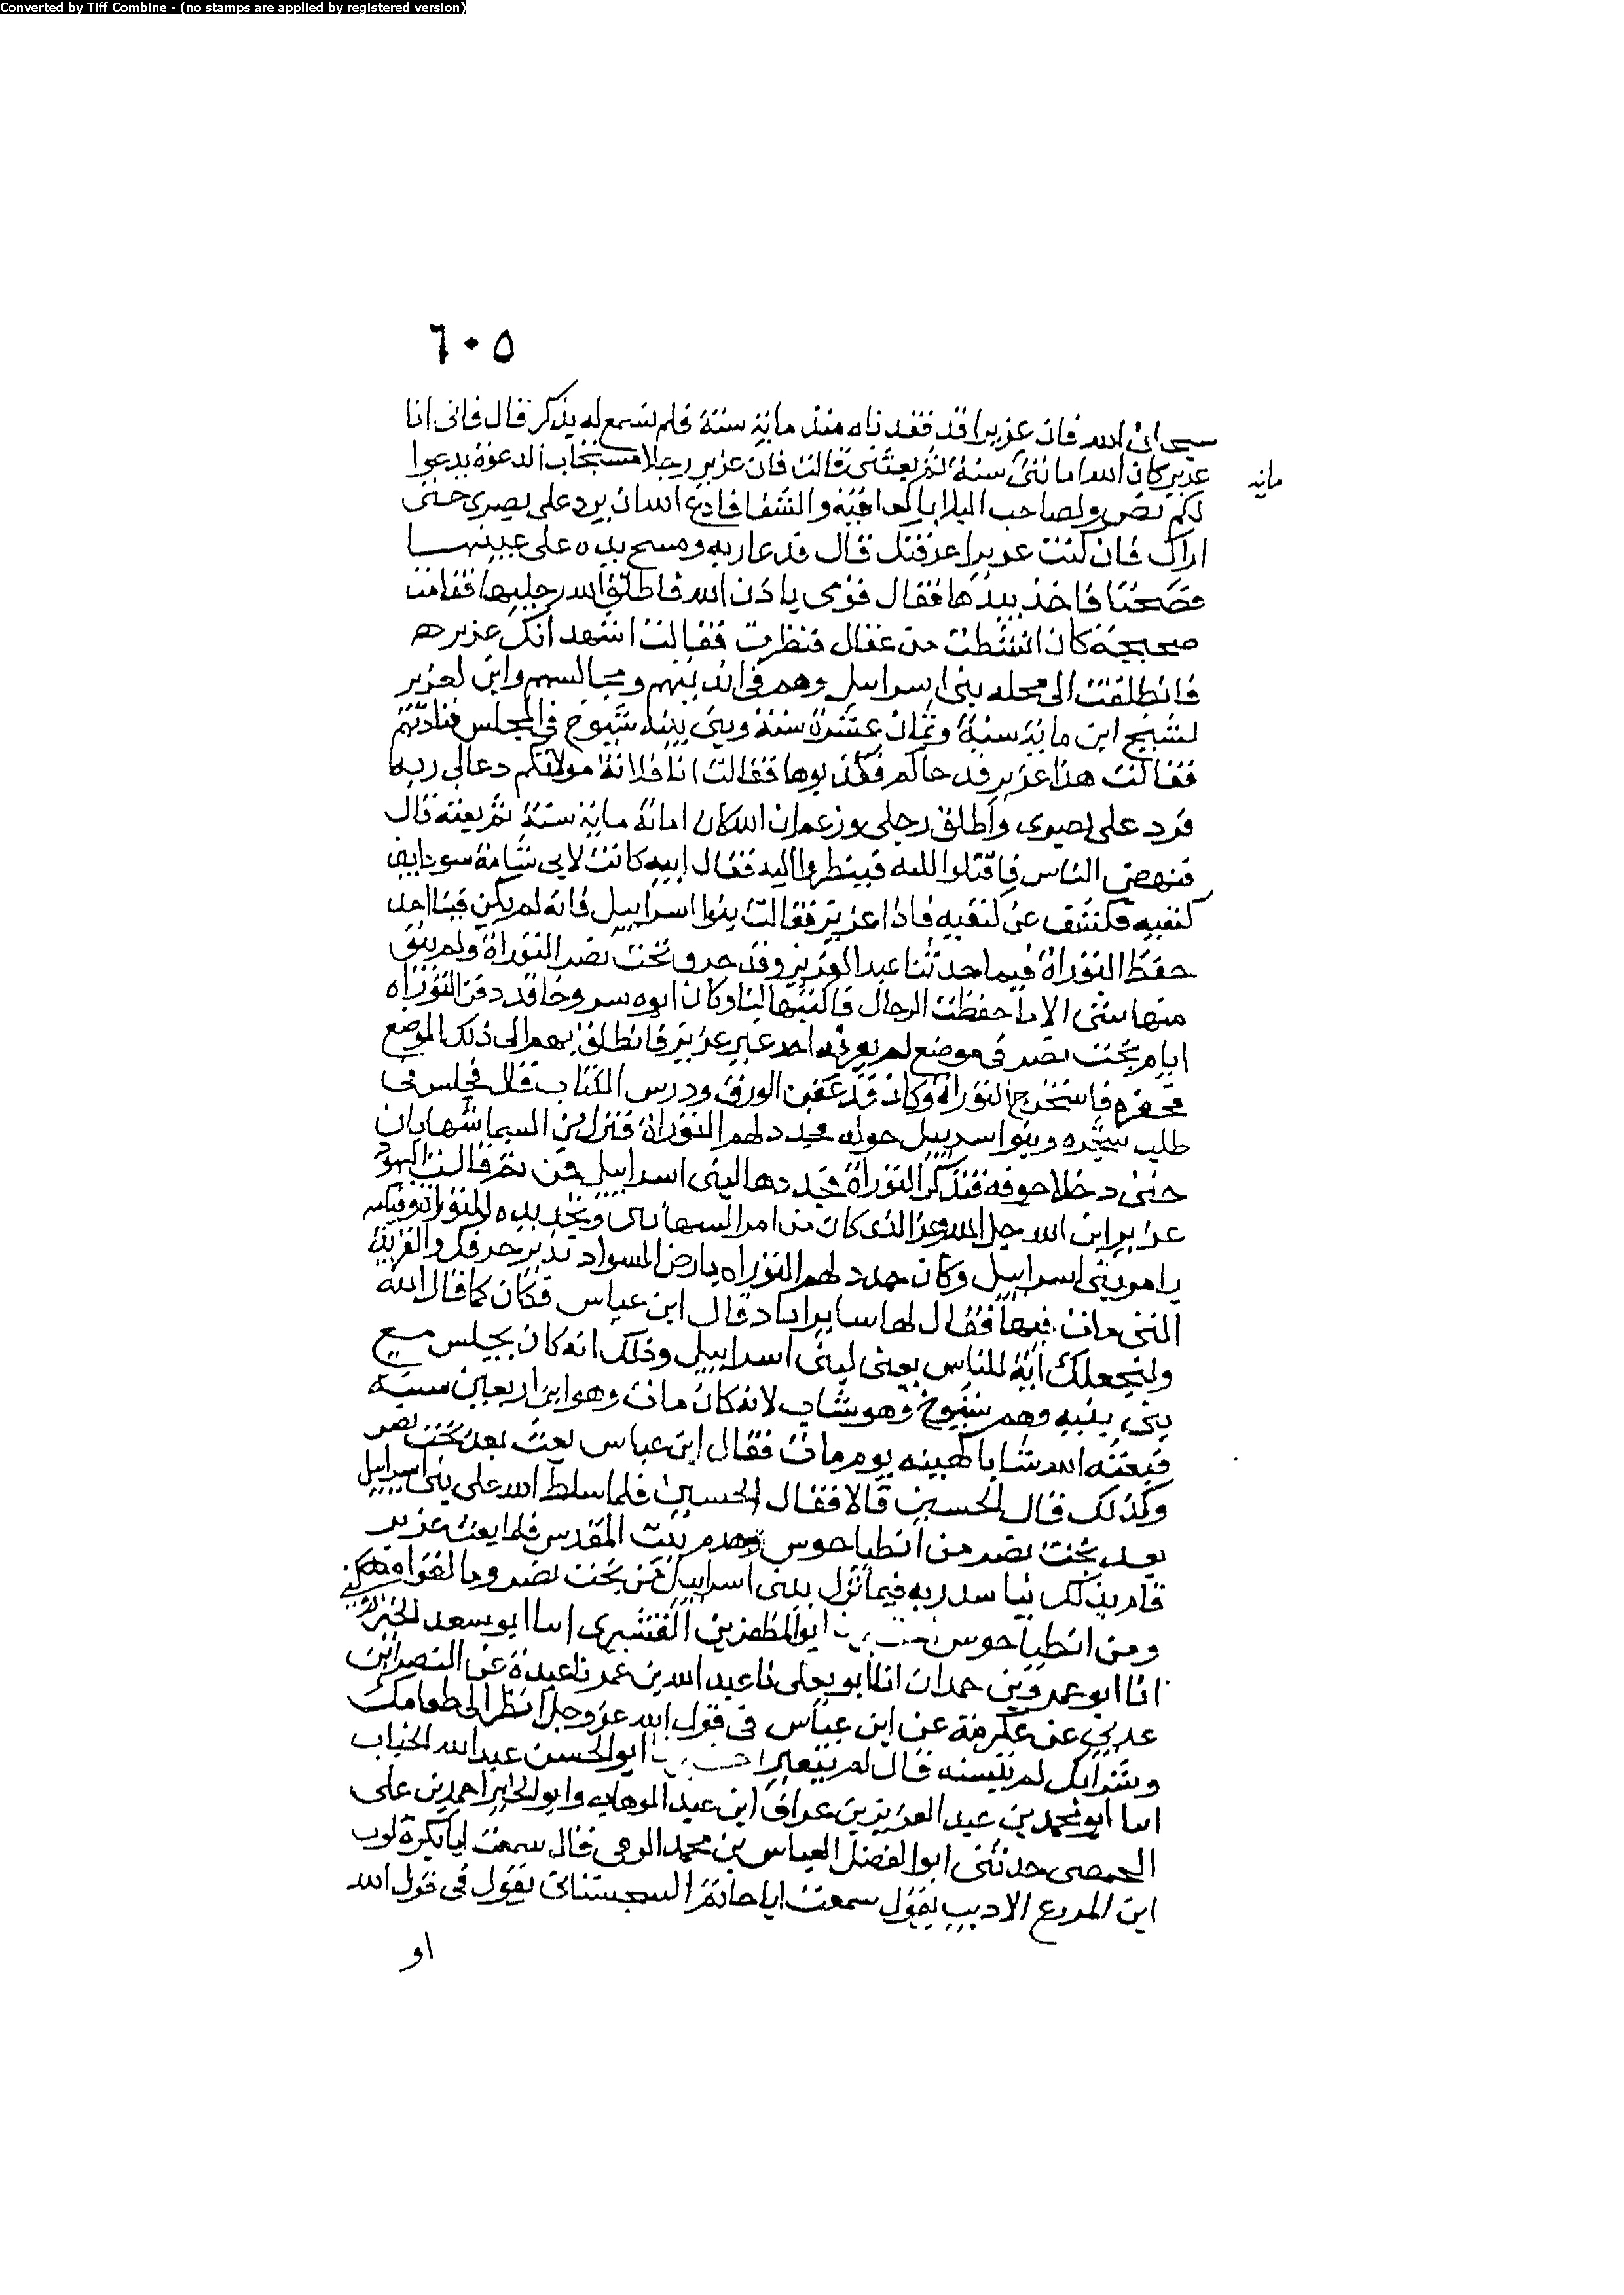 Converted by Tiff Combine - (no stamps are applied by registered version)
٦٠٥
سبحان الله فان عزيرا قد فقدناه منذ ماية سنة فلم نسمع له يذكر قال فانى انا
عزير كان الله اماتنى سنة ثم بعثنى قالت فان عزير رجلا مستجاب الدعوة يدعوا
مايه
لكم ولصاحب البلا بالعافية والشفا فادع الله ان يرد على بصرى حتى
اراك فان كنت عزيرا عرفتك قال فدعا ربه ومسح يده على عينيها
فصحتا فاخذ بيدها فقال قومى باذن الله فاطلق الله رجليها فقامت
صحيحة كان انشطت من عقال فنظرت فقالت اشهد انك عزير
فانطلقت الى محله بنى اسرايل وهم فى انديتهم ومجالسهم وابن لعزير
لشيخ ابن ماية سنة وثمان عشرة سنة وبنى بنيه شيوخ فى المجلس فنادتهم
فقالت هذا عزير قد جاكم فكذبوها فقالت انا فلانة مولاتكم دعا لى ربه
فرد على بصرى واطلق رجلى وزعم ان الله كان اماته ماية سنة ثم بعثه قال
فنهض الناس فاقبلوا اليه فينظروا اليه فقال ابنه كانت لابى شامة سودا بين
كتفيه فكشف عن كتفيه فاذا عزير فقالت بنوا اسراييل فانه لم يكن فينا احد
حفظ التوراة فيما حدثنا عبد العزيز وقد حرق بخت نصر التوراة ولم يبق
منها شى الا ما حفظت الرجال فاكتبها لنا وكان ابوه سروخا قد دفن التوراه
ايام بخت نصر فى موضع لم يعرفه احد غير عزير فانطلق بهم الى ذلك الموضع
فحفره فاستخرج التوراة وكان قد عفن الورق ودرس الكتاب قال فجلس فى
طلب شجره وبنو اسرييل حوله فجدد لهم التوراة فنزل من السما شهابان
حتى دخلا جوفه فتذكر التوراة فجددها لبنى اسراييل فمن ثم قالت اليهود
عزير ابن الله جل الله وعز الذى كان من امر الشهابين وتجديده التوراة وقيامه
بامر بنى اسراييل وكان جدد لهم التوراه بارض السواد بدير حزقل والقرية
التى مات فيها فقال لها سايراباد قال ابن عباس فكان كما قال الله
ولنجعلك اية للناس يعنى لبنى اسراييل وذلك انه كان يجلس مع
بنى بنيه وهم شيوخ وهو شاب لانه كان مات وهو ابن اربعين سنة
فبعثه الله شابا كهيئه يوم مات فقال ابن عباس بعث بعد بخت نصر
وكذلك قال الحسين قالا فقال الحسين فلما سلط الله على بنى اسراييل
بعد بخت نصر من انطياحوس وهدم بيت المقدس فلما بعث عزير
قام بذلك ربه فيما نزل ببنى اسراييل من بخت نصر وما لقوا
ومن انطياحوس ابو المظفر بن القشيرى انا ابو سعد
انا ابو عمرو بن حمدان انا ابو يعلى نا عبد الله بن عمر نا عبدة عن النضر ابن
عربى عن عكرمة عن ابن عباس فى قول الله عز وجل انظر الى طعامك
وشرابك لم يتسنه قال لم يتغير ابو الحسن عبد الله
انا ابو محمد بن عبد العزيز بن ابن عبد الوهاب وابو الخير احمد بن على
الحمصى حدثنى ابو الفضل العباس بن محمد قال سمعت
ابن المزرع الاديب يقول سمعت ابا حاتم السجستانى يقول فى قول الله
او